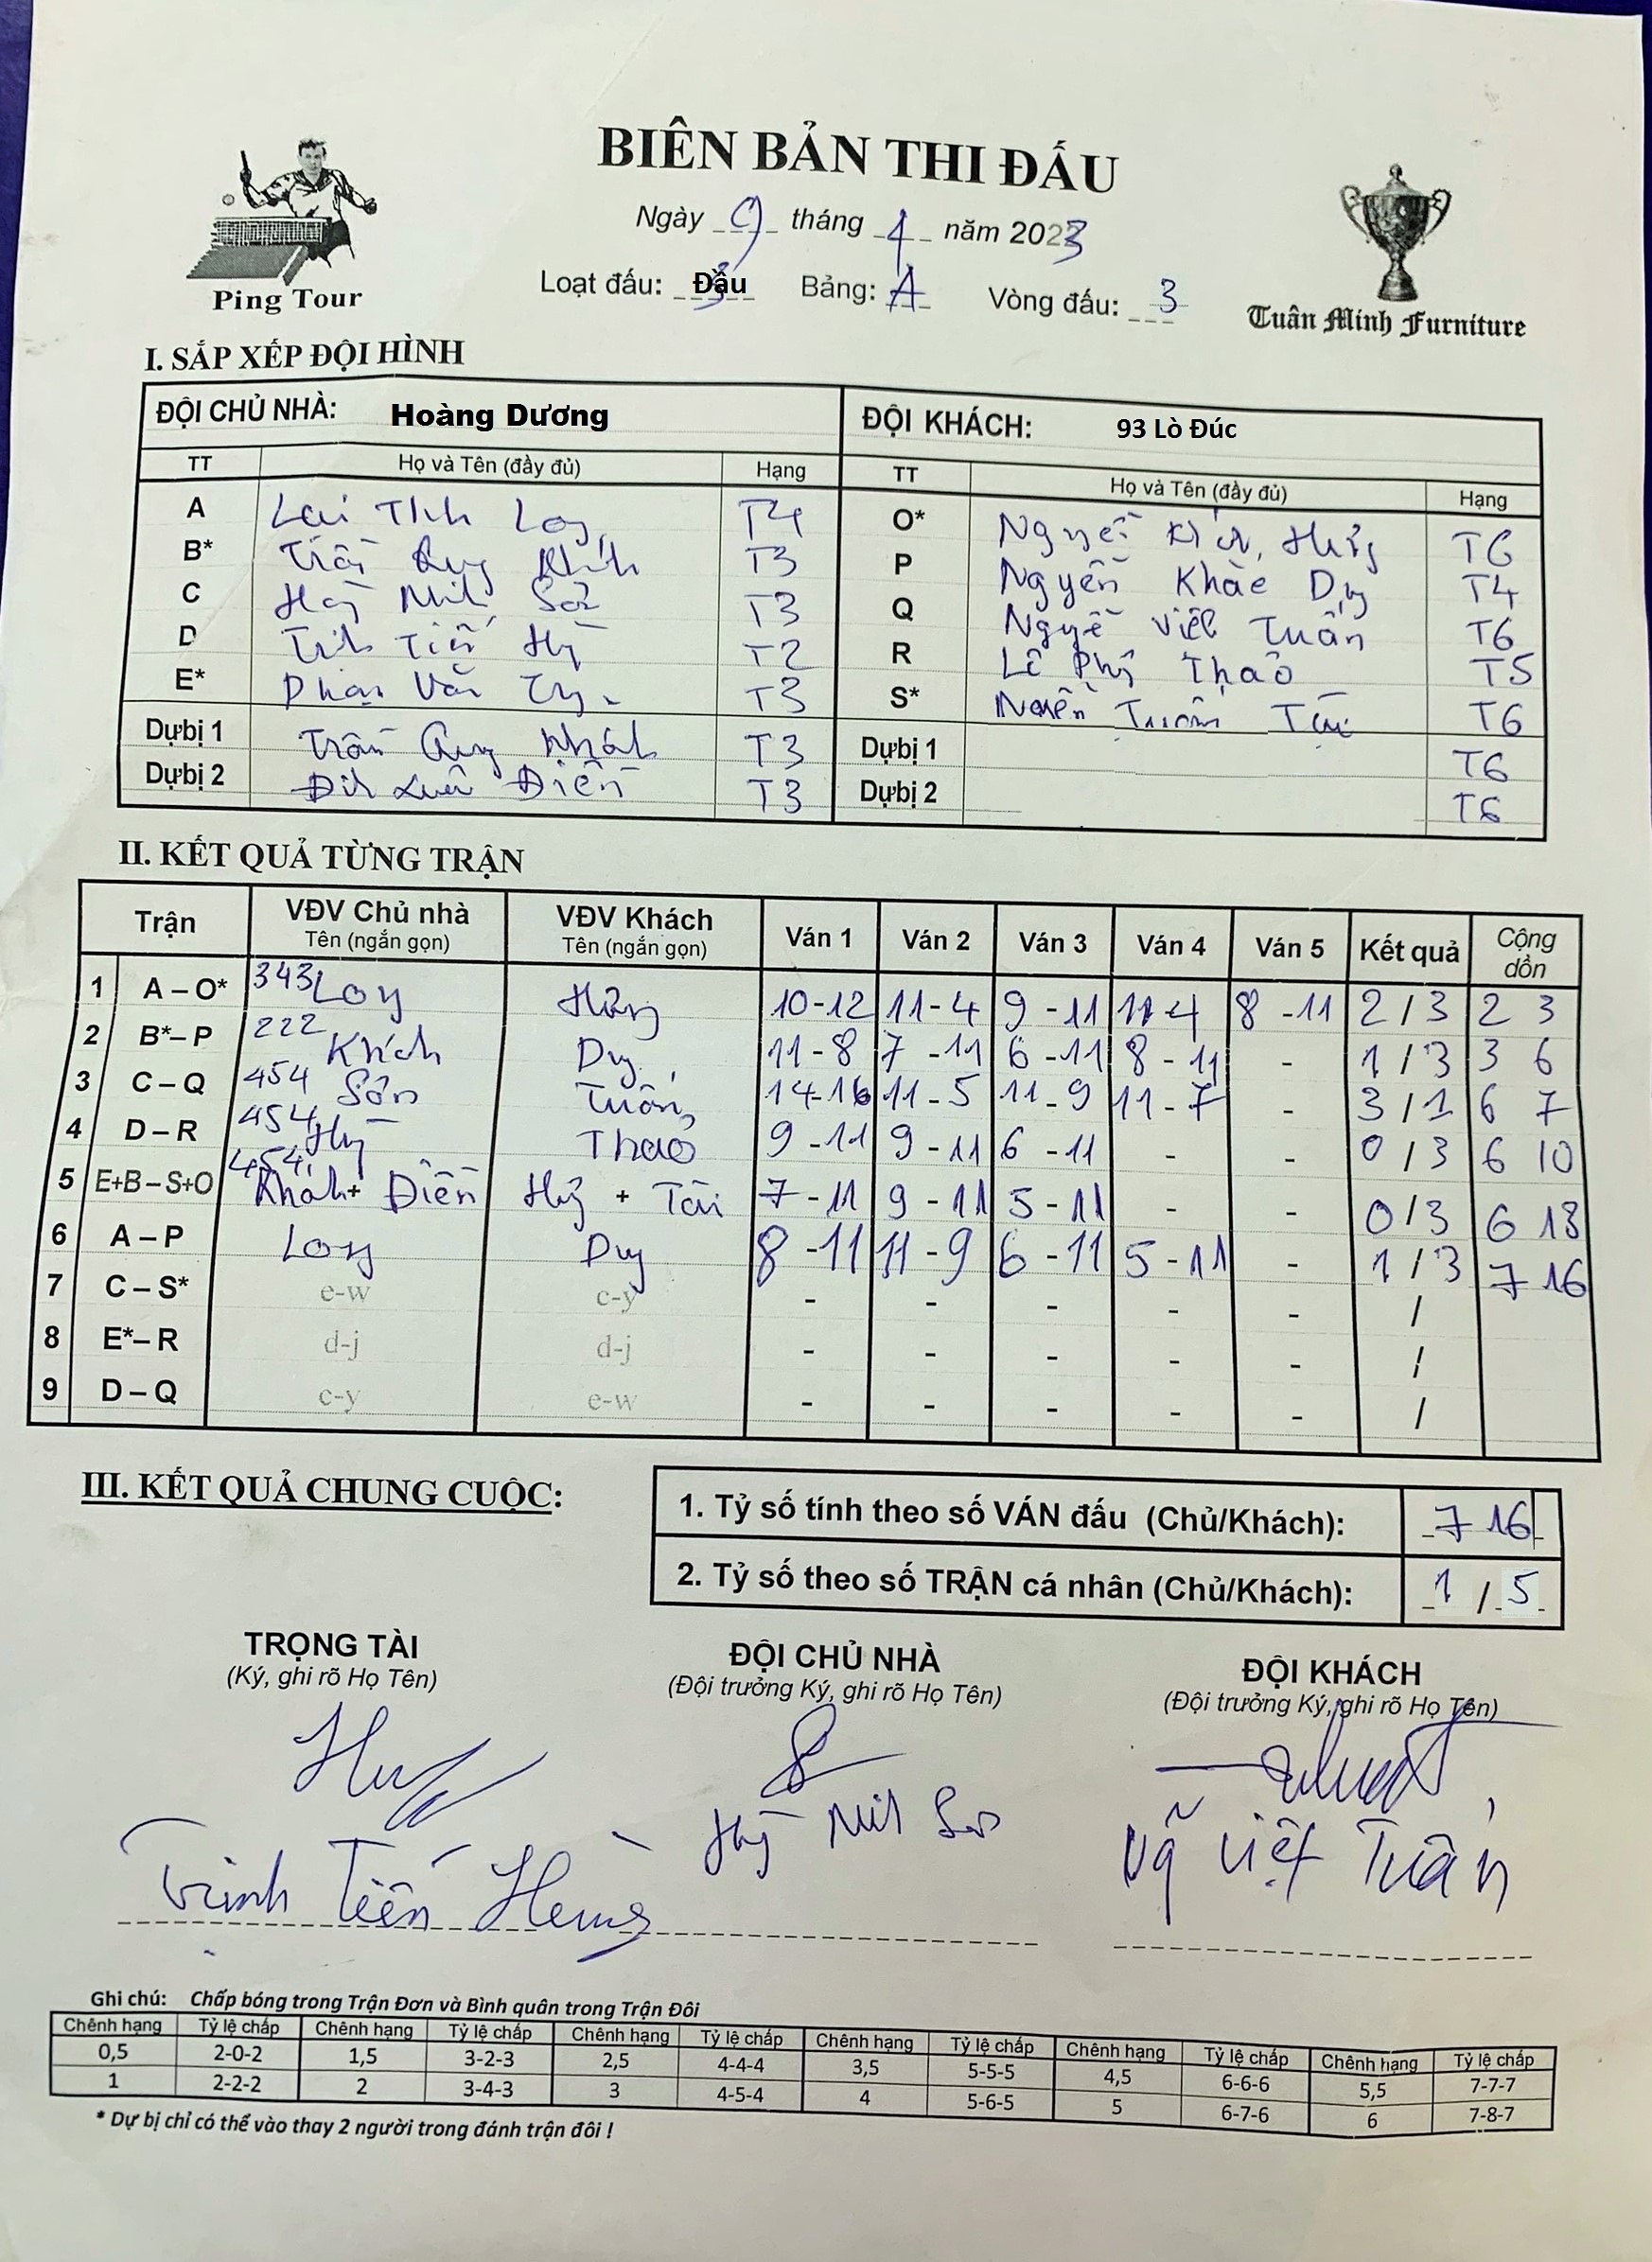 BIÊN BẢN THI ĐẤU
Ngày 9 tháng 4 năm 2023
Loạt đấu: Đầu Bảng: A Vòng đấu: 3
Ping Tour
Tuân Minh Furniture
I. SẮP XẾP ĐỘI HÌNH
ĐỘI CHỦ NHÀ: Hoàng Dương ĐỘI KHÁCH: 93 Lò Đúc
TT Họ và Tên (đầy đủ) Hạng TT Họ và Tên (đầy đủ) Hạng
A Lại T4 O* T6
B* Trần Quý Khánh T3 P Nguyễn Khắc Duy T4
C T3 Q Việt Tuấn T6
D T2 R Lê Phú Thảo T5
E* Phạm Văn T3 S* T6
Dựbị 1 Trần Quý Khánh T3 Dựbị 1 T6
Dựbị 2 Điền T3 Dựbị 2 T6
II. KẾT QUẢ TỪNG TRẬN
Trận VĐV Chủ nhà Tên (ngắn gọn) VĐV Khách Tên (ngắn gọn) Ván 1 Ván 2 Ván 3 Ván 4 Ván 5 Kết quả Cộng dồn
1 A – O* 343 Long Hùng 10-12 11-4 9-11 11-4 8-11 2/3 2 3
2 B*– P 222 Khánh Duy 11-8 7-11 6-11 8-11 - 1/3 3 6
3 C – Q 454 Sơn Tuấn 14-16 11-5 11-9 11-7 - 3/1 6 7
4 D – R 454 Thảo 9-11 9-11 6-11 - - 0/3 6 10
5 E+B – S+O 454 Khánh + Điền + Tài 7-11 9-11 5-11 - - 0/3 6 13
6 A – P Long Duy 8-11 11-9 6-11 5-11 - 1/3 7 16
7 C – S* e-w c-y - - - - - /
8 E*– R d-j d-j - - - - - /
9 D – Q c-y e-w - - - - - /
III. KẾT QUẢ CHUNG CUỘC:
1. Tỷ số tính theo số VÁN đấu (Chủ/Khách): 7 16
2. Tỷ số theo số TRẬN cá nhân (Chủ/Khách): 1 / 5
TRỌNG TÀI ĐỘI CHỦ NHÀ ĐỘI KHÁCH
(Ký, ghi rõ Họ Tên) (Đội trưởng Ký, ghi rõ Họ Tên) (Đội trưởng Ký, ghi rõ Họ Tên)
Trịnh Tiến Hưng Việt Tuấn
Ghi chú: Chấp bóng trong Trận Đơn và Bình quân trong Trận Đôi
Chênh hạng Tỷ lệ chấp Chênh hạng Tỷ lệ chấp Chênh hạng Tỷ lệ chấp Chênh hạng Tỷ lệ chấp Chênh hạng Tỷ lệ chấp Chênh hạng Tỷ lệ chấp
0,5 2-0-2 1,5 3-2-3 2,5 4-4-4 3,5 5-5-5 4,5 6-6-6 5,5 7-7-7
1 2-2-2 2 3-4-3 3 4-5-4 4 5-6-5 5 6-7-6 6 7-8-7
* Dự bị chỉ có thể vào thay 2 người trong đánh trận đôi !